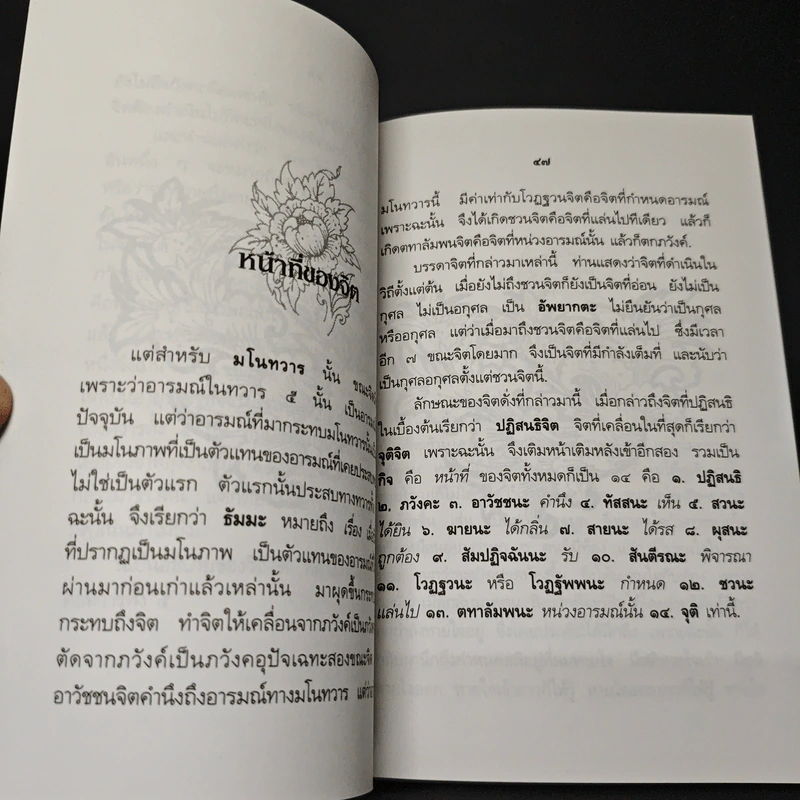 หน้าที่ของจิต
แต่สำหรับ มโนทวาร นั้น
เพราะว่าอารมณ์ในทวาร ๕ นั้น เป็นอารมณ์
ปัจจุบัน แต่ว่าอารมณ์ที่มากระทบมโนทวารนั้น
เป็นมโนภาพที่เป็นตัวแทนของอารมณ์ที่เคยประสบ
ไม่ใช่เป็นตัวแรก ตัวแรกนั้นประสบทางทวาร
ฉะนั้น จึงเรียกว่า ธัมมะ หมายถึง เรื่อง
ที่ปรากฏเป็นมโนภาพ เป็นตัวแทนของอารมณ์
ผ่านมาก่อนเก่าแล้วเหล่านั้น มาผุดขึ้น
กระทบถึงจิต ทำจิตให้เคลื่อนจากภวังค์เป็น
ตัดจากภวังค์เป็นภวังคอุปัจเฉทะสองขณะจิต
อาวัชชนจิตคำนึงถึงอารมณ์ทางมโนทวาร
๔๗
มโนทวารนี้ มีค่าเท่ากับโวฏฐวนจิตคือจิตที่กำหนดอารมณ์
เพราะฉะนั้น จึงได้เกิดชวนจิตคือจิตที่แล่นไปทีเดียว แล้วก็
เกิดตทาลัมพนจิตคือจิตที่หน่วงอารมณ์นั้น แล้วก็ตกภวังค์.
บรรดาจิตที่กล่าวมาเหล่านี้ ท่านแสดงว่าจิตที่ดำเนินใน
วิถีตั้งแต่ต้น เมื่อยังไม่ถึงชวนจิตก็ยังเป็นจิตที่อ่อน ยังไม่เป็น
กุศล ไม่เป็นอกุศล เป็น อัพยากตะ ไม่ยืนยันว่าเป็นกุศล
หรืออกุศล แต่ว่าเมื่อมาถึงชวนจิตคือจิตที่แล่นไป ซึ่งมีเวลา
อีก ๗ ขณะจิตโดยมาก จึงเป็นจิตที่มีกำลังเต็มที่ และนับว่า
เป็นกุศลอกุศลตั้งแต่ชวนจิตนี้.
ลักษณะของจิตดั่งที่กล่าวมานี้ เมื่อกล่าวถึงจิตที่ปฏิสนธิ
ในเบื้องต้นเรียกว่า ปฏิสนธิจิต จิตที่เคลื่อนในที่สุดก็เรียกว่า
จุติจิต เพราะฉะนั้น จึงเติมหน้าเติมหลังเข้าอีกสอง รวมเป็น
กิจ คือ หน้าที่ ของจิตทั้งหมดก็เป็น ๑๔ คือ ๑. ปฏิสนธิ
๒. ภวังคะ ๓. อาวัชชนะ คำนึง ๔. ทัสสนะ เห็น ๕. สวนะ
ได้ยิน ๖. ฆายนะ ได้กลิ่น ๗. สายนะ ได้รส ๘. ผุสนะ
ถูกต้อง ๙. สัมปฏิจฉันนะ รับ ๑๐. สันตีรณะ พิจารณา
๑๑. โวฏฐวนะ หรือ โวฏฐัพพนะ กำหนด ๑๒. ชวนะ
แล่นไป ๑๓. ตทาลัมพนะ หน่วงอารมณ์นั้น ๑๔. จุติ เท่านี้.